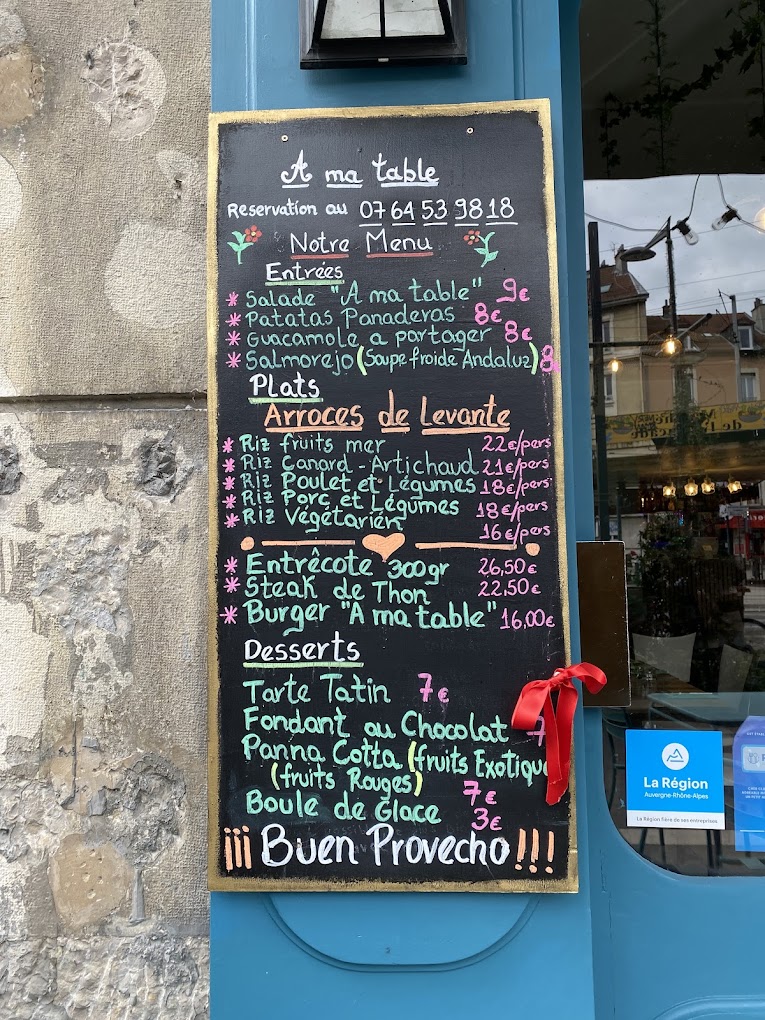 A ma table
Reservation au 07 64 53 98 18
Notre Menu
Entrées
* Salade "A ma table" 9€
* Patatas Panaderas 8€
* Guacamole a partager 8€
* Salmorejo (Soupe froide Andaluz) 8
Plats
Arroces de Levante
* Riz fruits mer 22€/pers
* Riz Canard-Artichaud 21€/pers
* Riz Poulet et Légumes 18€/pers
* Riz Porc et Légumes 18€/pers
* Riz Végétarien 16€/pers
* Entrêcote 300gr 26,50€
* Steak de Thon 22,50€
* Burger "A ma table" 16,00€
Desserts
Tarte Tatin 7€
Fondant au Chocolat 7
Panna Cotta (fruits Exotique
(fruits Rouges) 7€
Boule de Glace 3€
¡¡¡ Buen Provecho !!!
La Région
Auvergne-Rhône-Alpes
La Région fière de ses entreprises